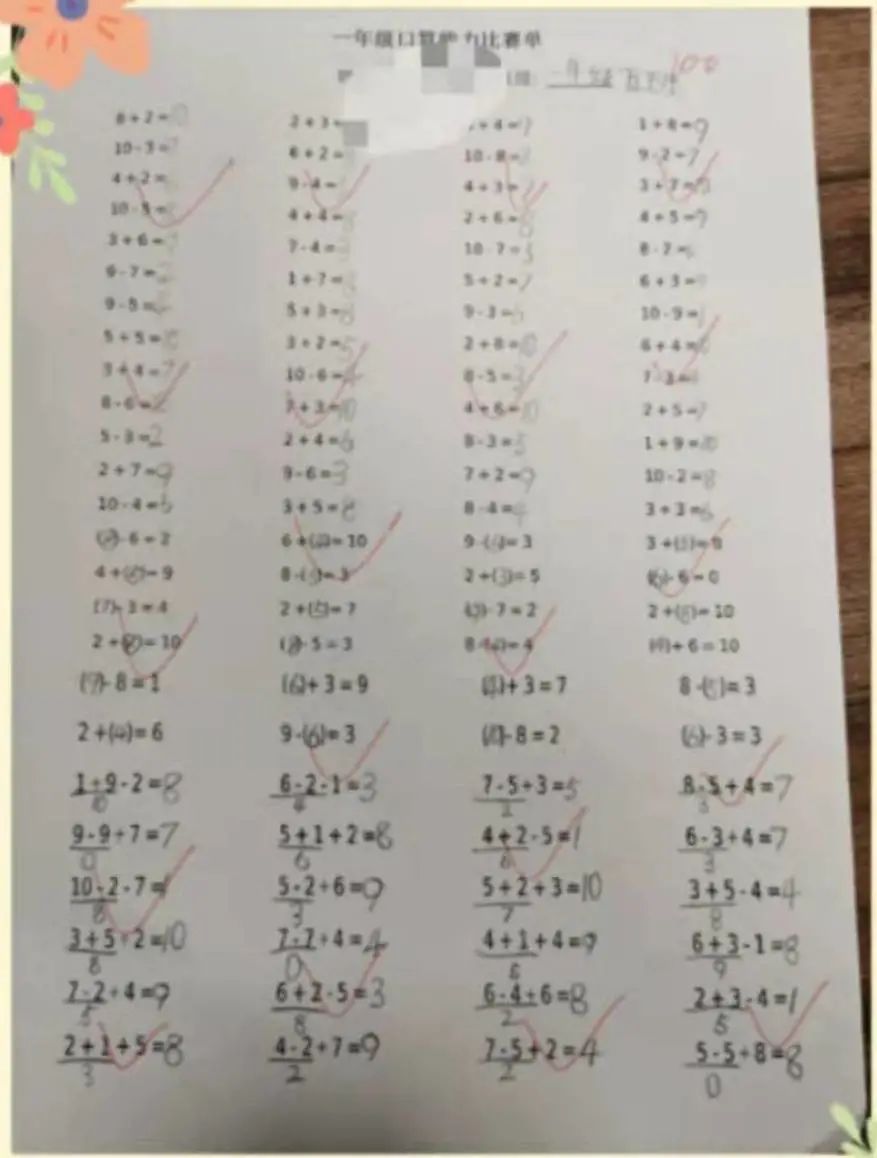 一年级口算能力比赛单
100
8+2=10 2+3= +4=7 1+8=9
10-3=7 6+2= 10-8= 9-2=7
4+2= 9-4= 4+3=7 3+7=10
10-5= 4+4= 2+6=8 4+5=9
3+6= 7-4= 10-7=3 8-7=
9-7= 1+7= 5+2=7 6+3=9
9-5= 5+3= 9-3=6 10-9=1
5+5=10 3+2=5 2+8=10 6+4=
3+4=7 10-6=4 8-5=3 7-3=
8-6=2 7+3=10 4+6=10 2+5=7
5-3=2 2+4=6 8-3=5 1+9=10
2+7=9 9-6=3 7+2=9 10-2=8
10-4=6 3+5=8 8-4=4 3+3=6
(8)-6=2 6+(4)=10 9-(6)=3 3+( )=
4+(5)=9 8-(5)=3 2+(3)=5 (6)-6=0
(7)-3=4 2+(5)=7 (9)-7=2 2+(8)=10
2+(8)=10 (8)-5=3 8-(4)=4 (4)+6=10
(9)-8=1 (6)+3=9 (4)+3=7 8-(5)=3
2+(4)=6 9-(6)=3 (10)-8=2 (6)-3=3
1+9-2=8 6-2-1=3 7-5+3=5 8-5+4=7
10 4 2 3
9-9+7=7 5+1+2=8 4+2-5=1 6-3+4=7
0 6 6 3
10-2-7=1 5-2+6=9 5+2+3=10 3+5-4=4
8 3 7 8
3+5+2=10 7-7+4=4 4+1+4=9 6+3-1=8
8 0 5 9
7-2+4=9 6+2-5=3 6-4+6=8 2+3-4=1
5 8 2 5
2+1+5=8 4-2+7=9 7-5+2=4 5-5+8=8
3 2 2 0